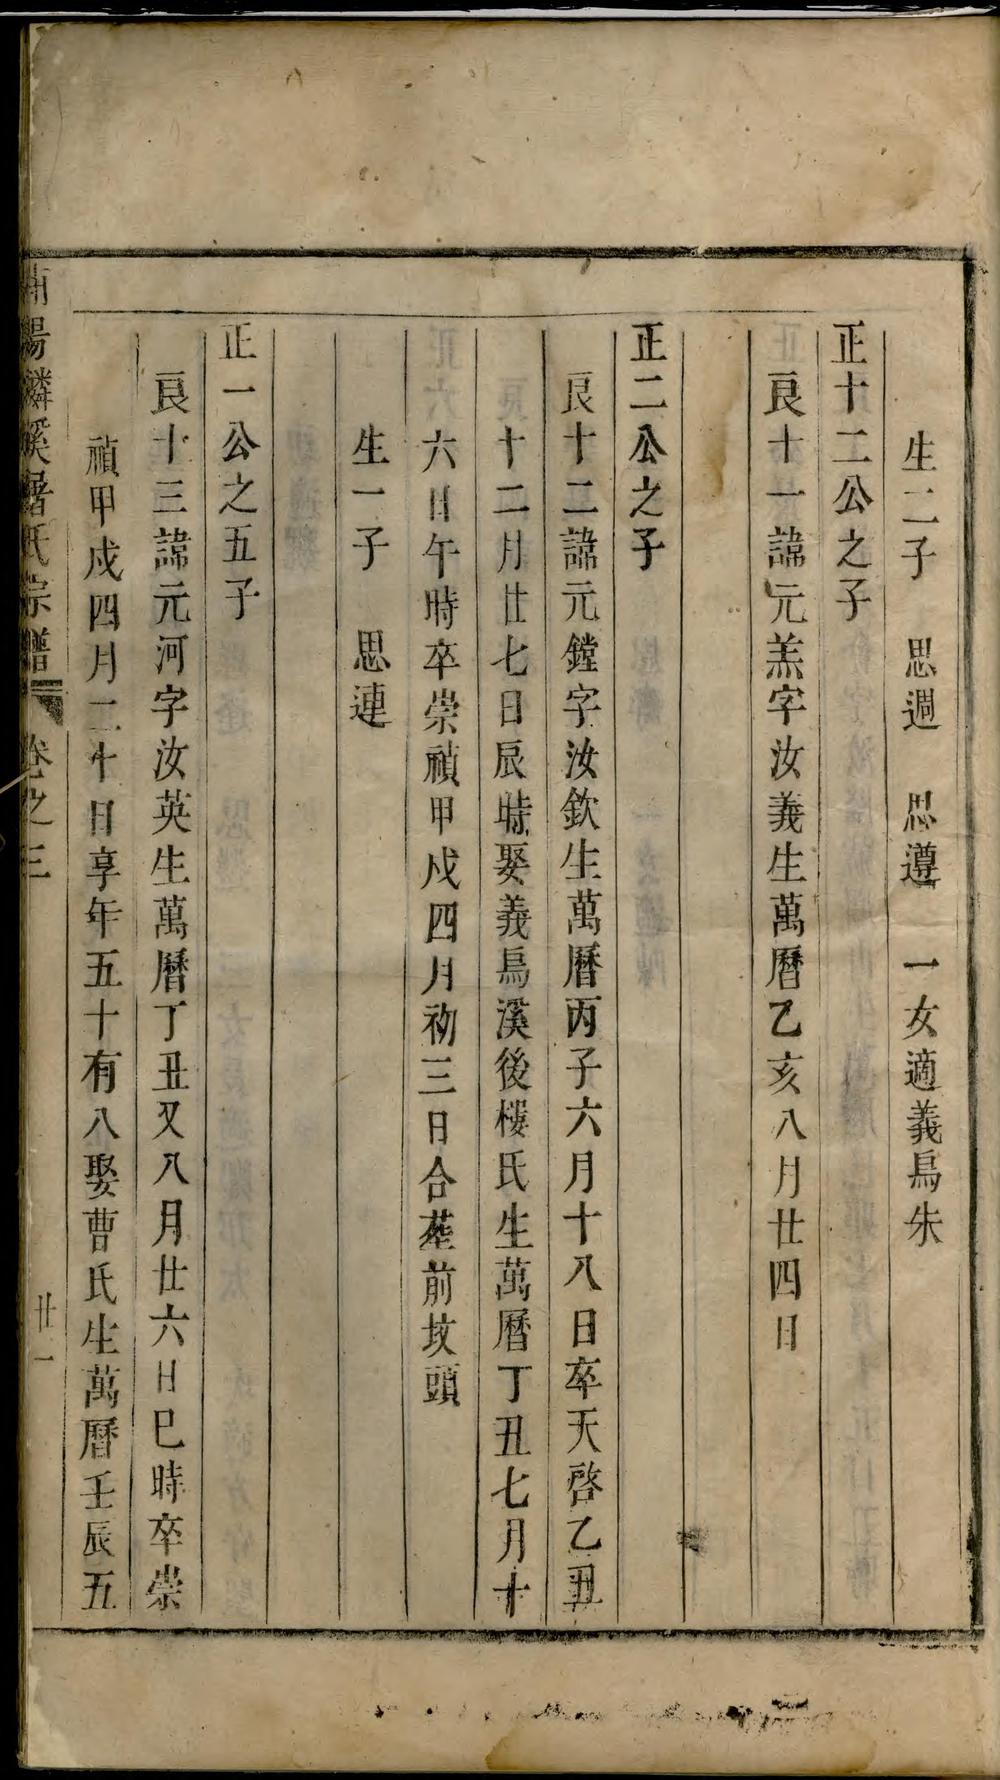 生二子　思週　思遵　一女適義烏朱
正十二公之子
良十一諱元羔字汝義生萬曆乙亥八月廿四日
正二公之子
良十二諱元鏜字汝欽生萬曆丙子六月十八日卒天啓乙丑
十二月廿七日辰時娶義烏溪後樓氏生萬曆丁丑七月十
六日午時卒崇禎甲戌四月初三日合塟前坟頭
生一子　思連
正一公之五子
良十三諱元河字汝英生萬曆丁丑又八月廿六日巳時卒崇
禎甲戌四月二十日享年五十有八娶曹氏生萬曆壬辰五
陽溪氏宗譜　卷之三　廿一